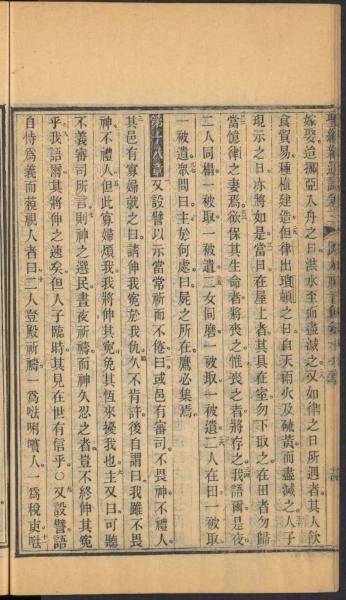 嫁娶迨挪亞入舟之日洪水至而盡滅之又如律之日所遇者其人飲
食貿易種植建造但律出瑣頓之日自天雨火及硫黃而盡滅之人子
現示之日亦將如是當日在屋上者其具在室勿下取之在田者勿歸
當憶律之妻焉欲保其生命者將喪之惟喪之者將存之我語爾是夜
二人同榻一被取一被遺二女同磨一被取一被遺二人在田一被取
一被遺眾問曰主於何處曰屍之所在鷹必集焉
第十八章 又設譬以示當常祈而不倦曰或邑有審司不畏神不禮人
其邑有寡婦就之曰請伸我冤於我仇久不肯許後自謂曰我雖不畏
神不禮人但此寡婦煩我我將伸其冤免其恆來擾我也主又曰可聽
不義審司所言則神之選民晝夜祈禱而神久忍之者豈不終伸其冤
乎我語爾其將伸之速矣但人子臨時其見在世有信乎〇又設譬語
自恃為義而藐視人者曰二人登殿祈禱一為𠵽唎㘔人一為稅吏𠵽